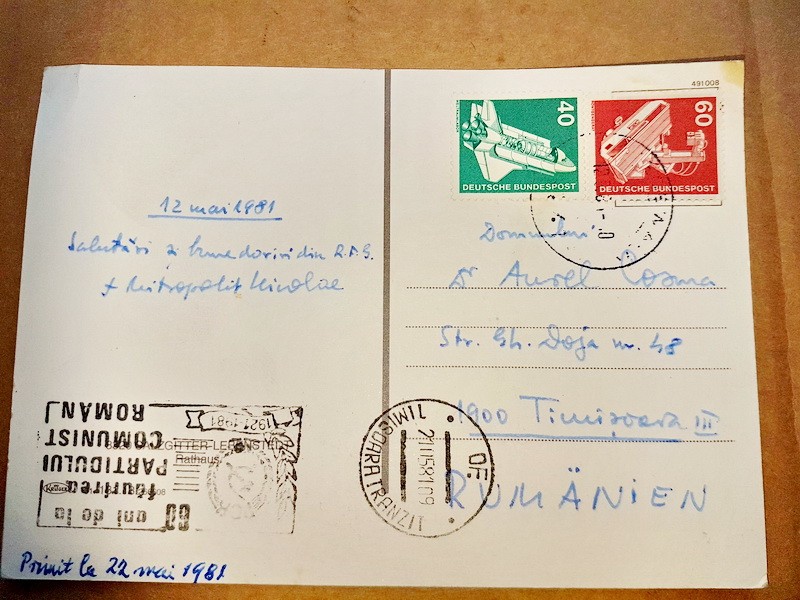 491008
40
DEUTSCHE BUNDESPOST
60
DEUTSCHE BUNDESPOST
12 mai 1981
Salutări și bune doriri din R.F.G.
+ Mitropolit Nicolae
Domnului
Dr Aurel Cosma
Str. Gh. Doja nr. 48
1900 Timișoara III
RUMÄNIEN
TIMISOARA TRANZIT
OF.
1921-1981
60 ani de la
făurirea
PARTIDULUI
COMUNIST
ROMÂN
SALZGITTER-LEBENSTEDT
Rathaus
Primit la 22 mai 1981